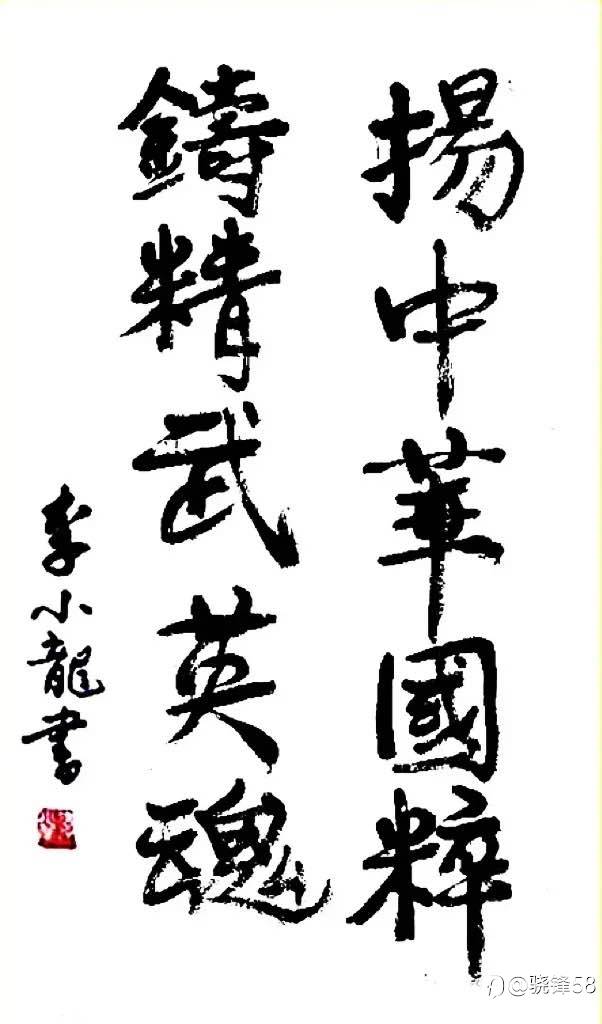 揚中華國粹
鑄精武英魂
李小龍書
@骁锋58